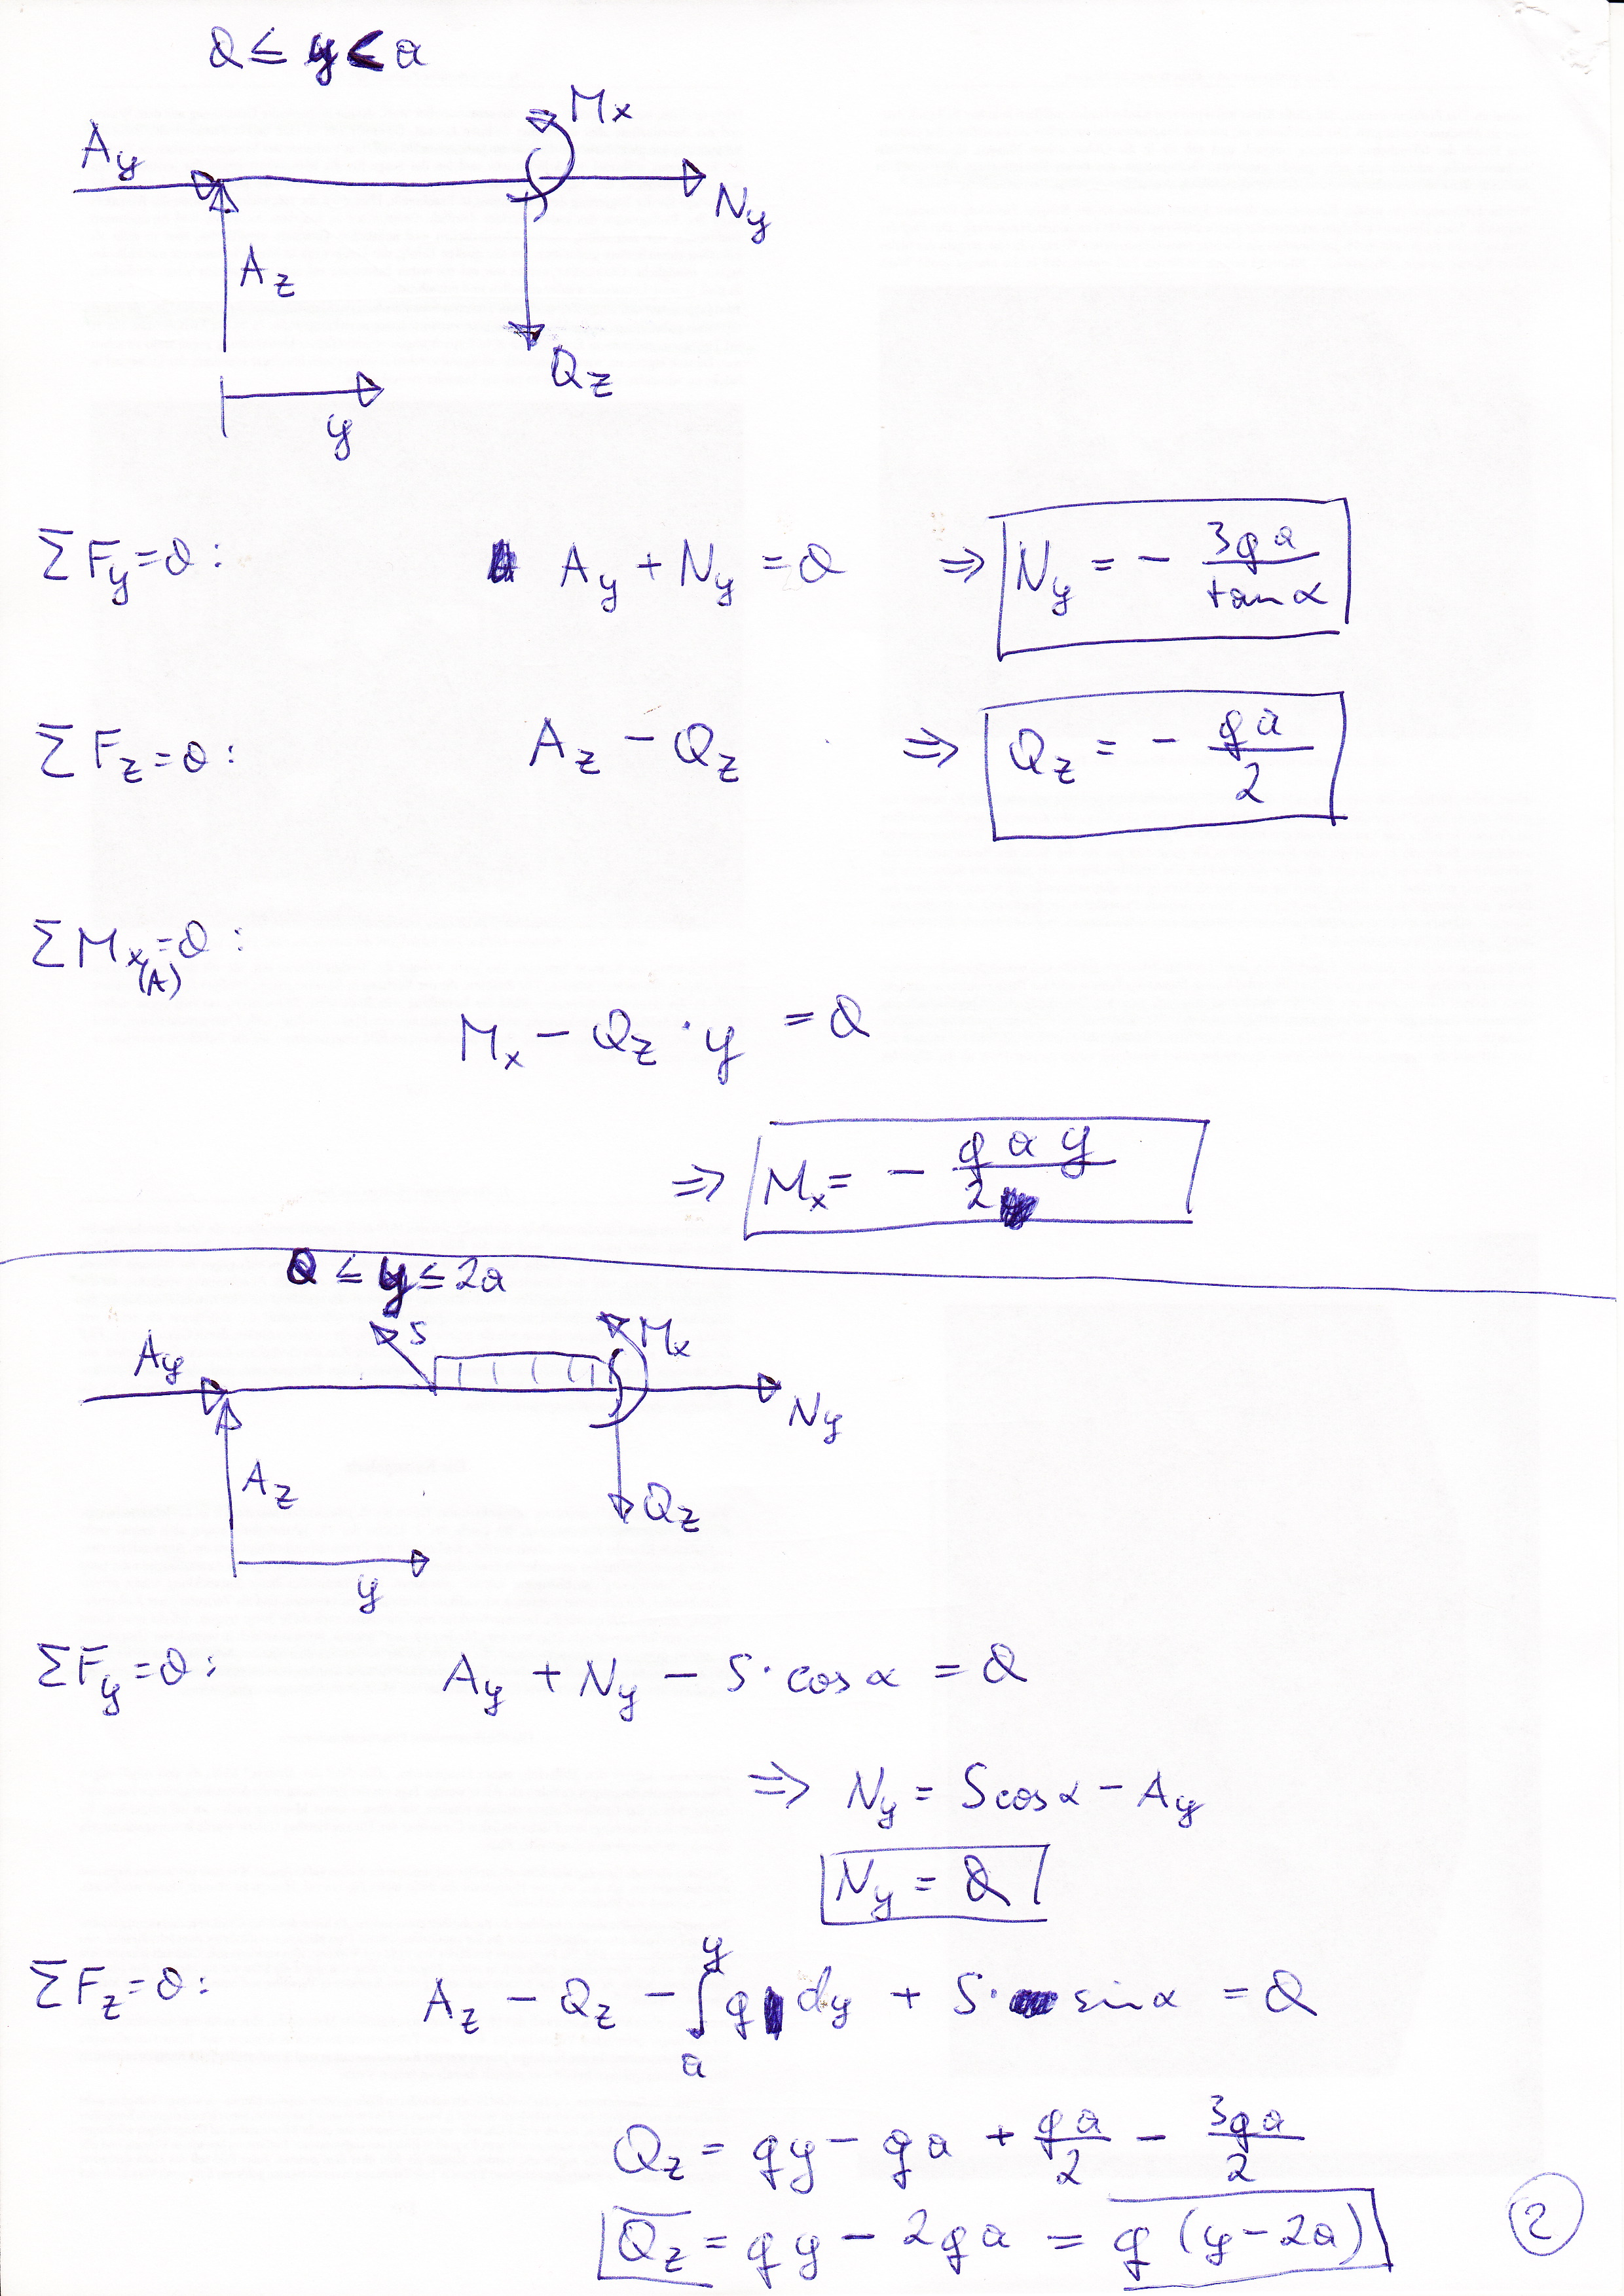 0 ≤ y < a
Mx
Ay
Ny
Az
Qz
y
ΣFy=0: Ay + Ny = 0 ⇒ Ny = - 3qa/tanα
ΣFz=0: Az - Qz ⇒ Qz = - qa/2
ΣMx(A)=0:
Mx - Qz · y = 0
⇒ Mx = - q a y/2
a ≤ y ≤ 2a
S
Mx
Ay
Ny
Az
Qz
y
ΣFy=0: Ay + Ny - S·cosα = 0
⇒ Ny = S cosα - Ay
Ny = 0
ΣFz=0: Az - Qz - ∫_a^y q dy + S· sinα = 0
Qz = qy - qa + qa/2 - 3qa/2
Qz = qy - 2qa = q (y-2a)
2